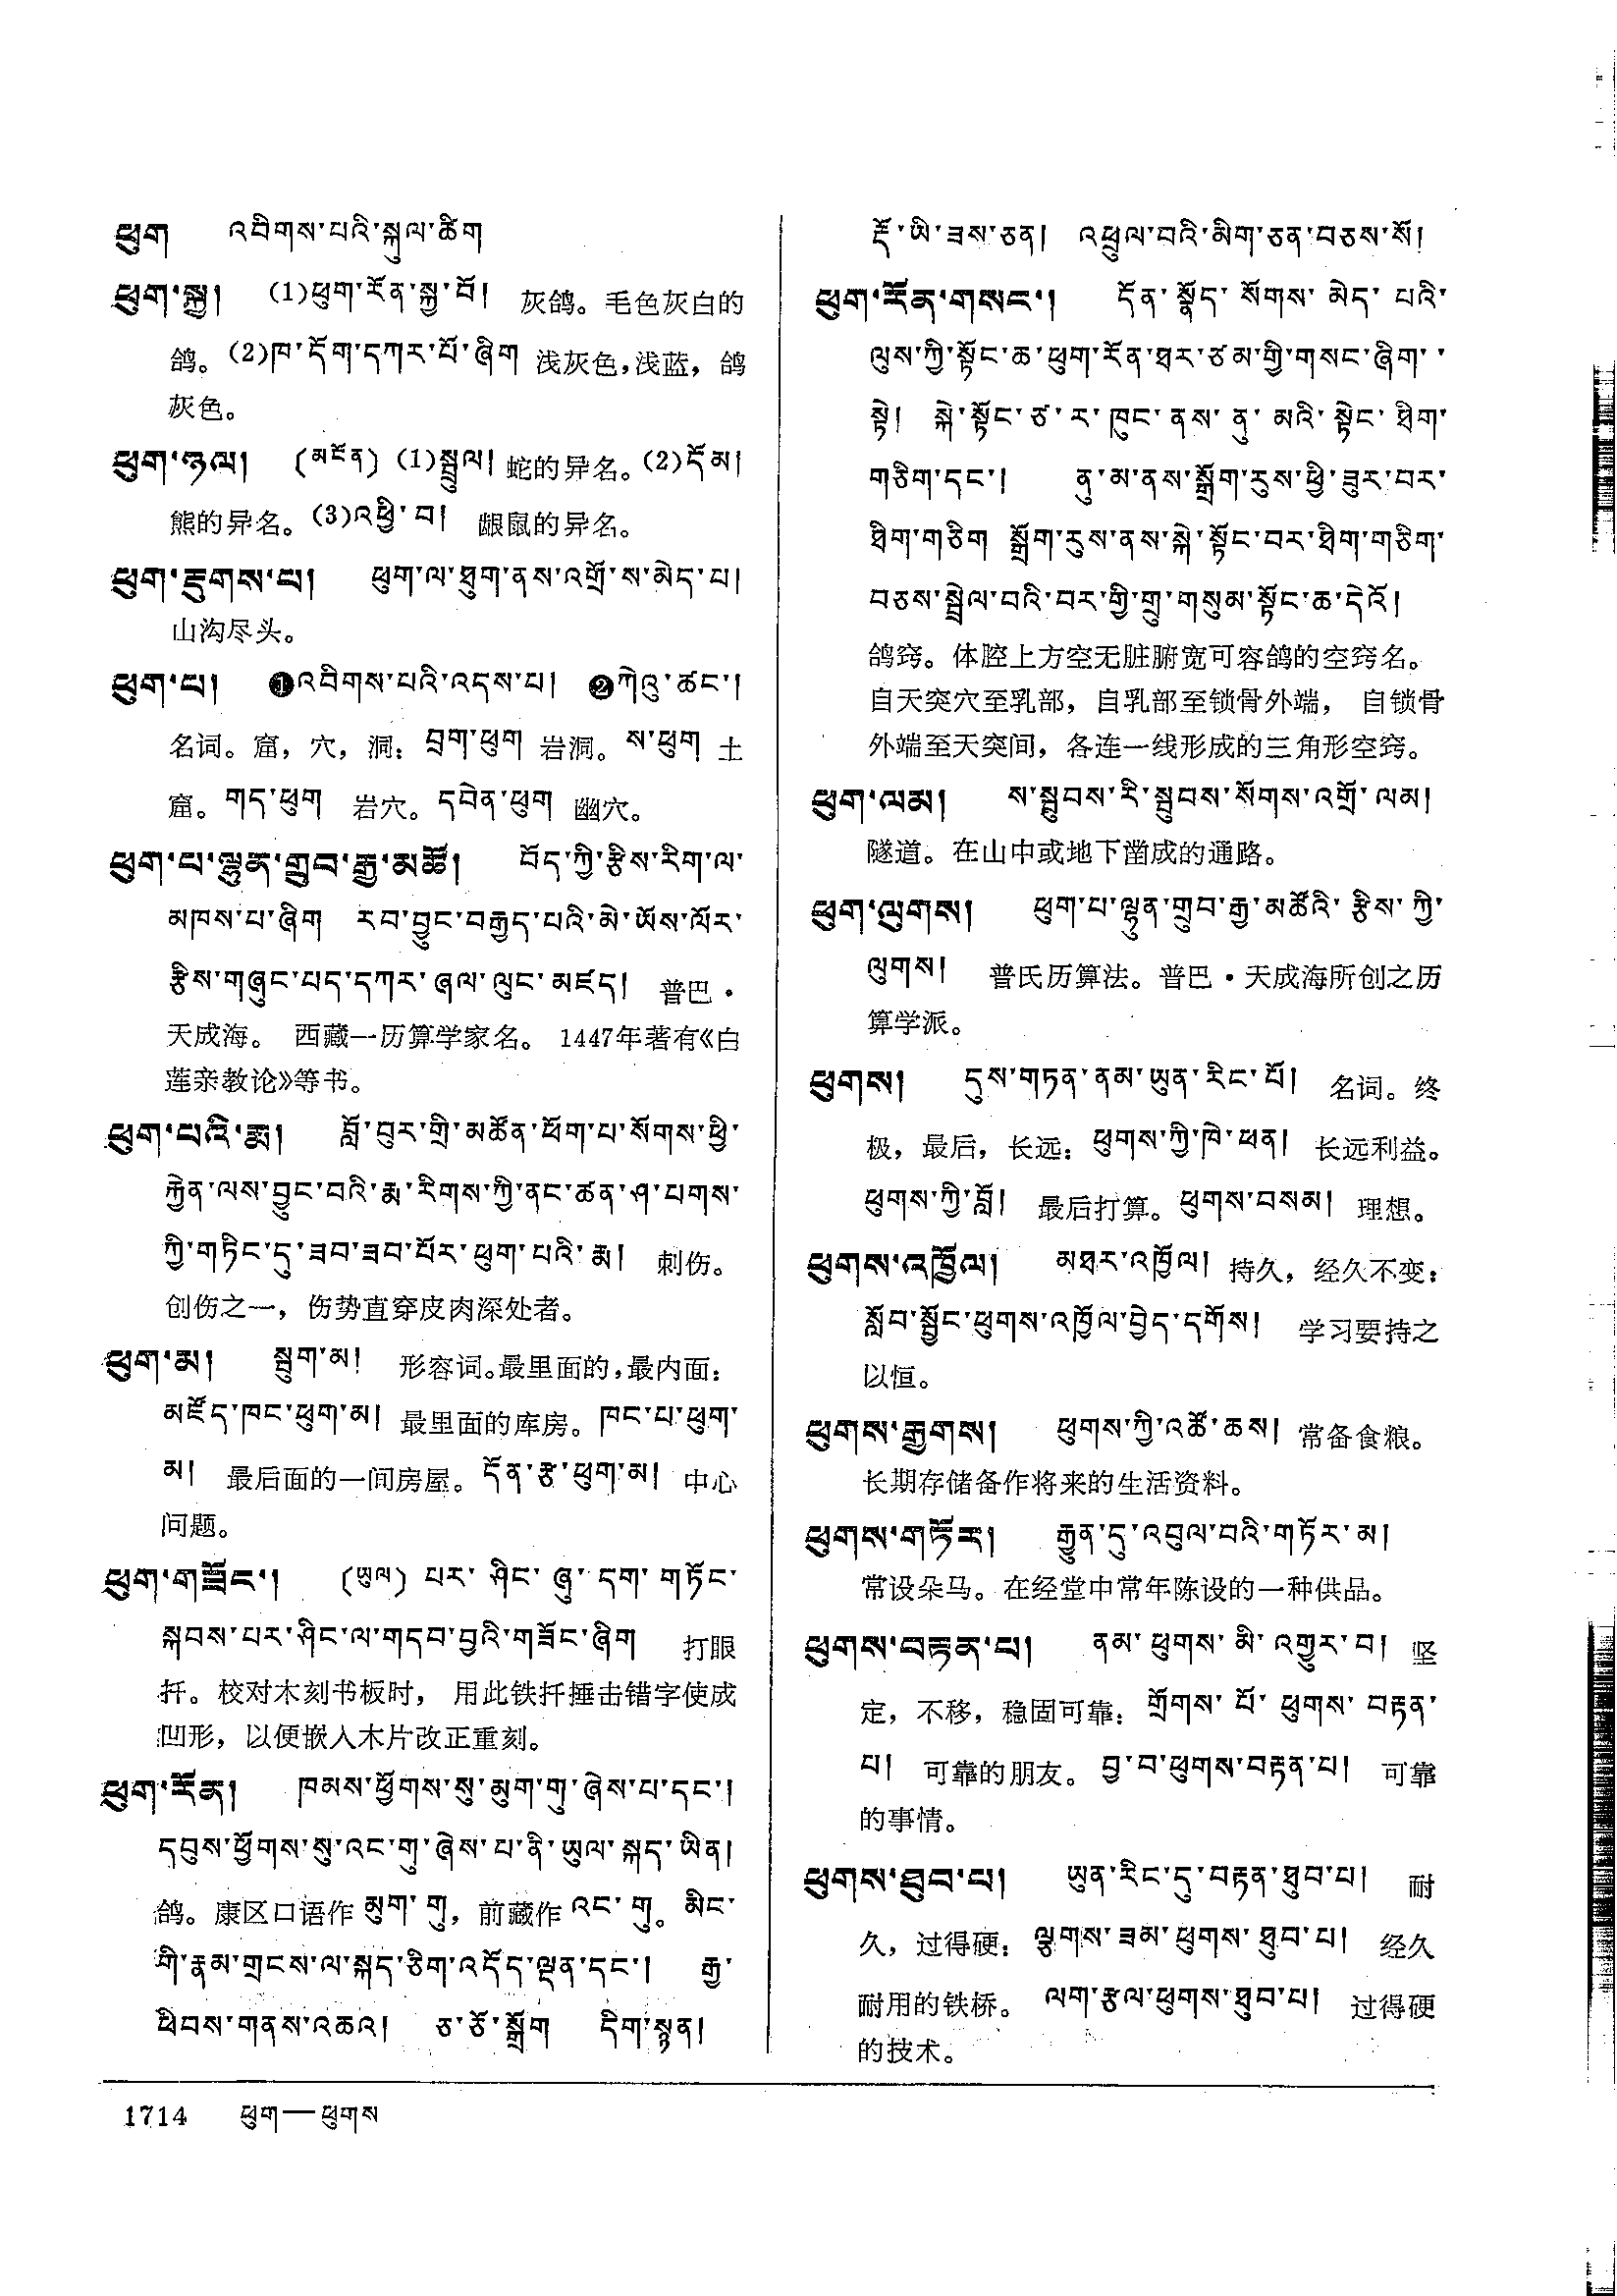 ཕུག འབིགས་པའི་སྐུལ་ཚིག
ཕུག་སྐྱ། (1)ཕུག་རོན་སྐྱ་བོ། 灰鸽。毛色灰白的
鸽。(2)ཁ་དོག་དཀར་པོ་ཞིག 浅灰色,浅蓝，鸽
灰色。
ཕུག་ཉལ། (མངོན) (1)སྦྲུལ། 蛇的异名。(2)དོམ།
熊的异名。(3)འཕྱི་བ། 鼹鼠的异名。
ཕུག་རྡུགས་པ། ཕུག་ལ་ཐུག་ནས་འགྲོ་ས་མེད་པ།
山沟尽头。
ཕུག་པ། ❶འབིགས་པའི་འདས་པ། ❷ཀེའུ་ཚང་།
名词。窟，穴，洞：བྲག་ཕུག 岩洞。ས་ཕུག 土
窟。གད་ཕུག 岩穴。དབེན་ཕུག 幽穴。
ཕུག་པ་ལྷུན་གྲུབ་རྒྱ་མཚོ། བོད་ཀྱི་རྩིས་རིག་ལ་
མཁས་པ་ཞིག རབ་བྱུང་བརྒྱད་པའི་མེ་ཡོས་ལོར་
རྩིས་གཞུང་པད་དཀར་ཞལ་ལུང་མཛད། 普巴·
天成海。 西藏一历算学家名。 1447年著有《白
莲亲教论》等书。
ཕུག་པའི་རྨ། བློ་བུར་གྲི་མཚོན་ཕོག་པ་སོགས་ཕྱི་
རྐྱེན་ལས་བྱུང་བའི་རྨ་རིགས་ཀྱི་ནང་ཚན་ཤ་པགས་
ཀྱི་གཏིང་དུ་ཟབ་ཟབ་པོར་ཕུག་པའི་རྨ། 刺伤。
创伤之一，伤势直穿皮肉深处者。
ཕུག་མ། སྦུག་མ། 形容词。最里面的,最内面：
མཛོད་ཁང་ཕུག་མ། 最里面的库房。ཁང་པ་ཕུག་
མ། 最后面的一间房屋。དོན་རྩ་ཕུག་མ། 中心
问题。
ཕུག་གཟོང་། (ཡུལ) པར་ཤིང་ཞུ་དག་གཏོང་
སྐབས་པར་ཤིང་ལ་གདབ་བྱའི་གཟོང་ཞིག 打眼
扦。校对木刻书板时， 用此铁扦捶击错字使成
凹形，以便嵌入木片改正重刻。
ཕུག་རོན། ཁམས་ཕྱོགས་སུ་མུག་གུ་ཞེས་པ་དང་།
དབུས་ཕྱོགས་སུ་འང་གུ་ཞེས་པ་ནི་ཡུལ་སྐད་ཡིན།
鸽。康区口语作 མུག་གུ，前藏作 འང་གུ。མིང་
གི་རྣམ་གྲངས་ལ་སྐད་ཅིག་འདོད་ལྡན་དང་། རྒྱ་
ཕིབས་གནས་འཆའ། ཅ་ཅོ་སྒྲོག དིག་སྟན།
རྡོ་ཡི་ཟས་ཅན། འཕྲུལ་བའི་མིག་ཅན་བཅས་སོ།
ཕུག་རོན་གསང་། དོན་སྣོད་སོགས་མེད་པའི་
ལུས་ཀྱི་སྟོང་ཆ་ཕུག་རོན་ཐར་ཙམ་གྱི་གསང་ཞིག་
སྟེ། སྐེ་སྟོང་ཙ་ར་ཁུང་ནས་ནུ་མའི་སྟེང་ཐིག་
གཅིག་དང་། ནུ་མ་ནས་སྒྲོག་རུས་ཕྱི་ཟུར་བར་
ཐིག་གཅིག སྒྲོག་རུས་ནས་སྐེ་སྟོང་བར་ཐིག་གཅིག་
བཅས་སྦྲེལ་བའི་བར་གྱི་གྲུ་གསུམ་སྟོང་ཆ་དེའོ།
鸽窍。体腔上方空无脏腑宽可容鸽的空窍名。
自天突穴至乳部，自乳部至锁骨外端， 自锁骨
外端至天突间，各连一线形成的三角形空窍。
ཕུག་ལམ། ས་སྦུབས་རི་སྦུབས་སོགས་འགྲོ་ལམ།
隧道。在山中或地下凿成的通路。
ཕུག་ལུགས། ཕུག་པ་ལྷུན་གྲུབ་རྒྱ་མཚོའི་རྩིས་ཀྱི་
ལུགས། 普氏历算法。普巴·天成海所创之历
算学派。
ཕུགས། དུས་གཏན་ནམ་ཡུན་རིང་པོ། 名词。终
极，最后，长远：ཕུགས་ཀྱི་ཁེ་ཕན། 长远利益。
ཕུགས་ཀྱི་བློ། 最后打算。ཕུགས་བསམ། 理想。
ཕུགས་འཁྱོལ། མཐར་འཁྱོལ། 持久，经久不变：
སློབ་སྦྱོང་ཕུགས་འཁྱོལ་བྱེད་དགོས། 学习要持之
以恒。
ཕུགས་རྒྱགས། ཕུགས་ཀྱི་འཚོ་ཆས། 常备食粮。
长期存储备作将来的生活资料。
ཕུགས་གཏོར། རྒྱུན་དུ་འབུལ་བའི་གཏོར་མ།
常设朵马。在经堂中常年陈设的一种供品。
ཕུགས་བརྟན་པ། ནམ་ཕུགས་མི་འགྱུར་བ། 坚
定，不移，稳固可靠：གྲོགས་པོ་ཕུགས་བརྟན་
པ། 可靠的朋友。བྱ་བ་ཕུགས་བརྟན་པ། 可靠
的事情。
ཕུགས་ཐུབ་པ། ཡུན་རིང་དུ་བརྟན་ཐུབ་པ། 耐
久，过得硬：ལྕགས་ཟམ་ཕུགས་ཐུབ་པ། 经久
耐用的铁桥。 ལག་རྩལ་ཕུགས་ཐུབ་པ། 过得硬
的技术。
1714 ཕུག—ཕུགས